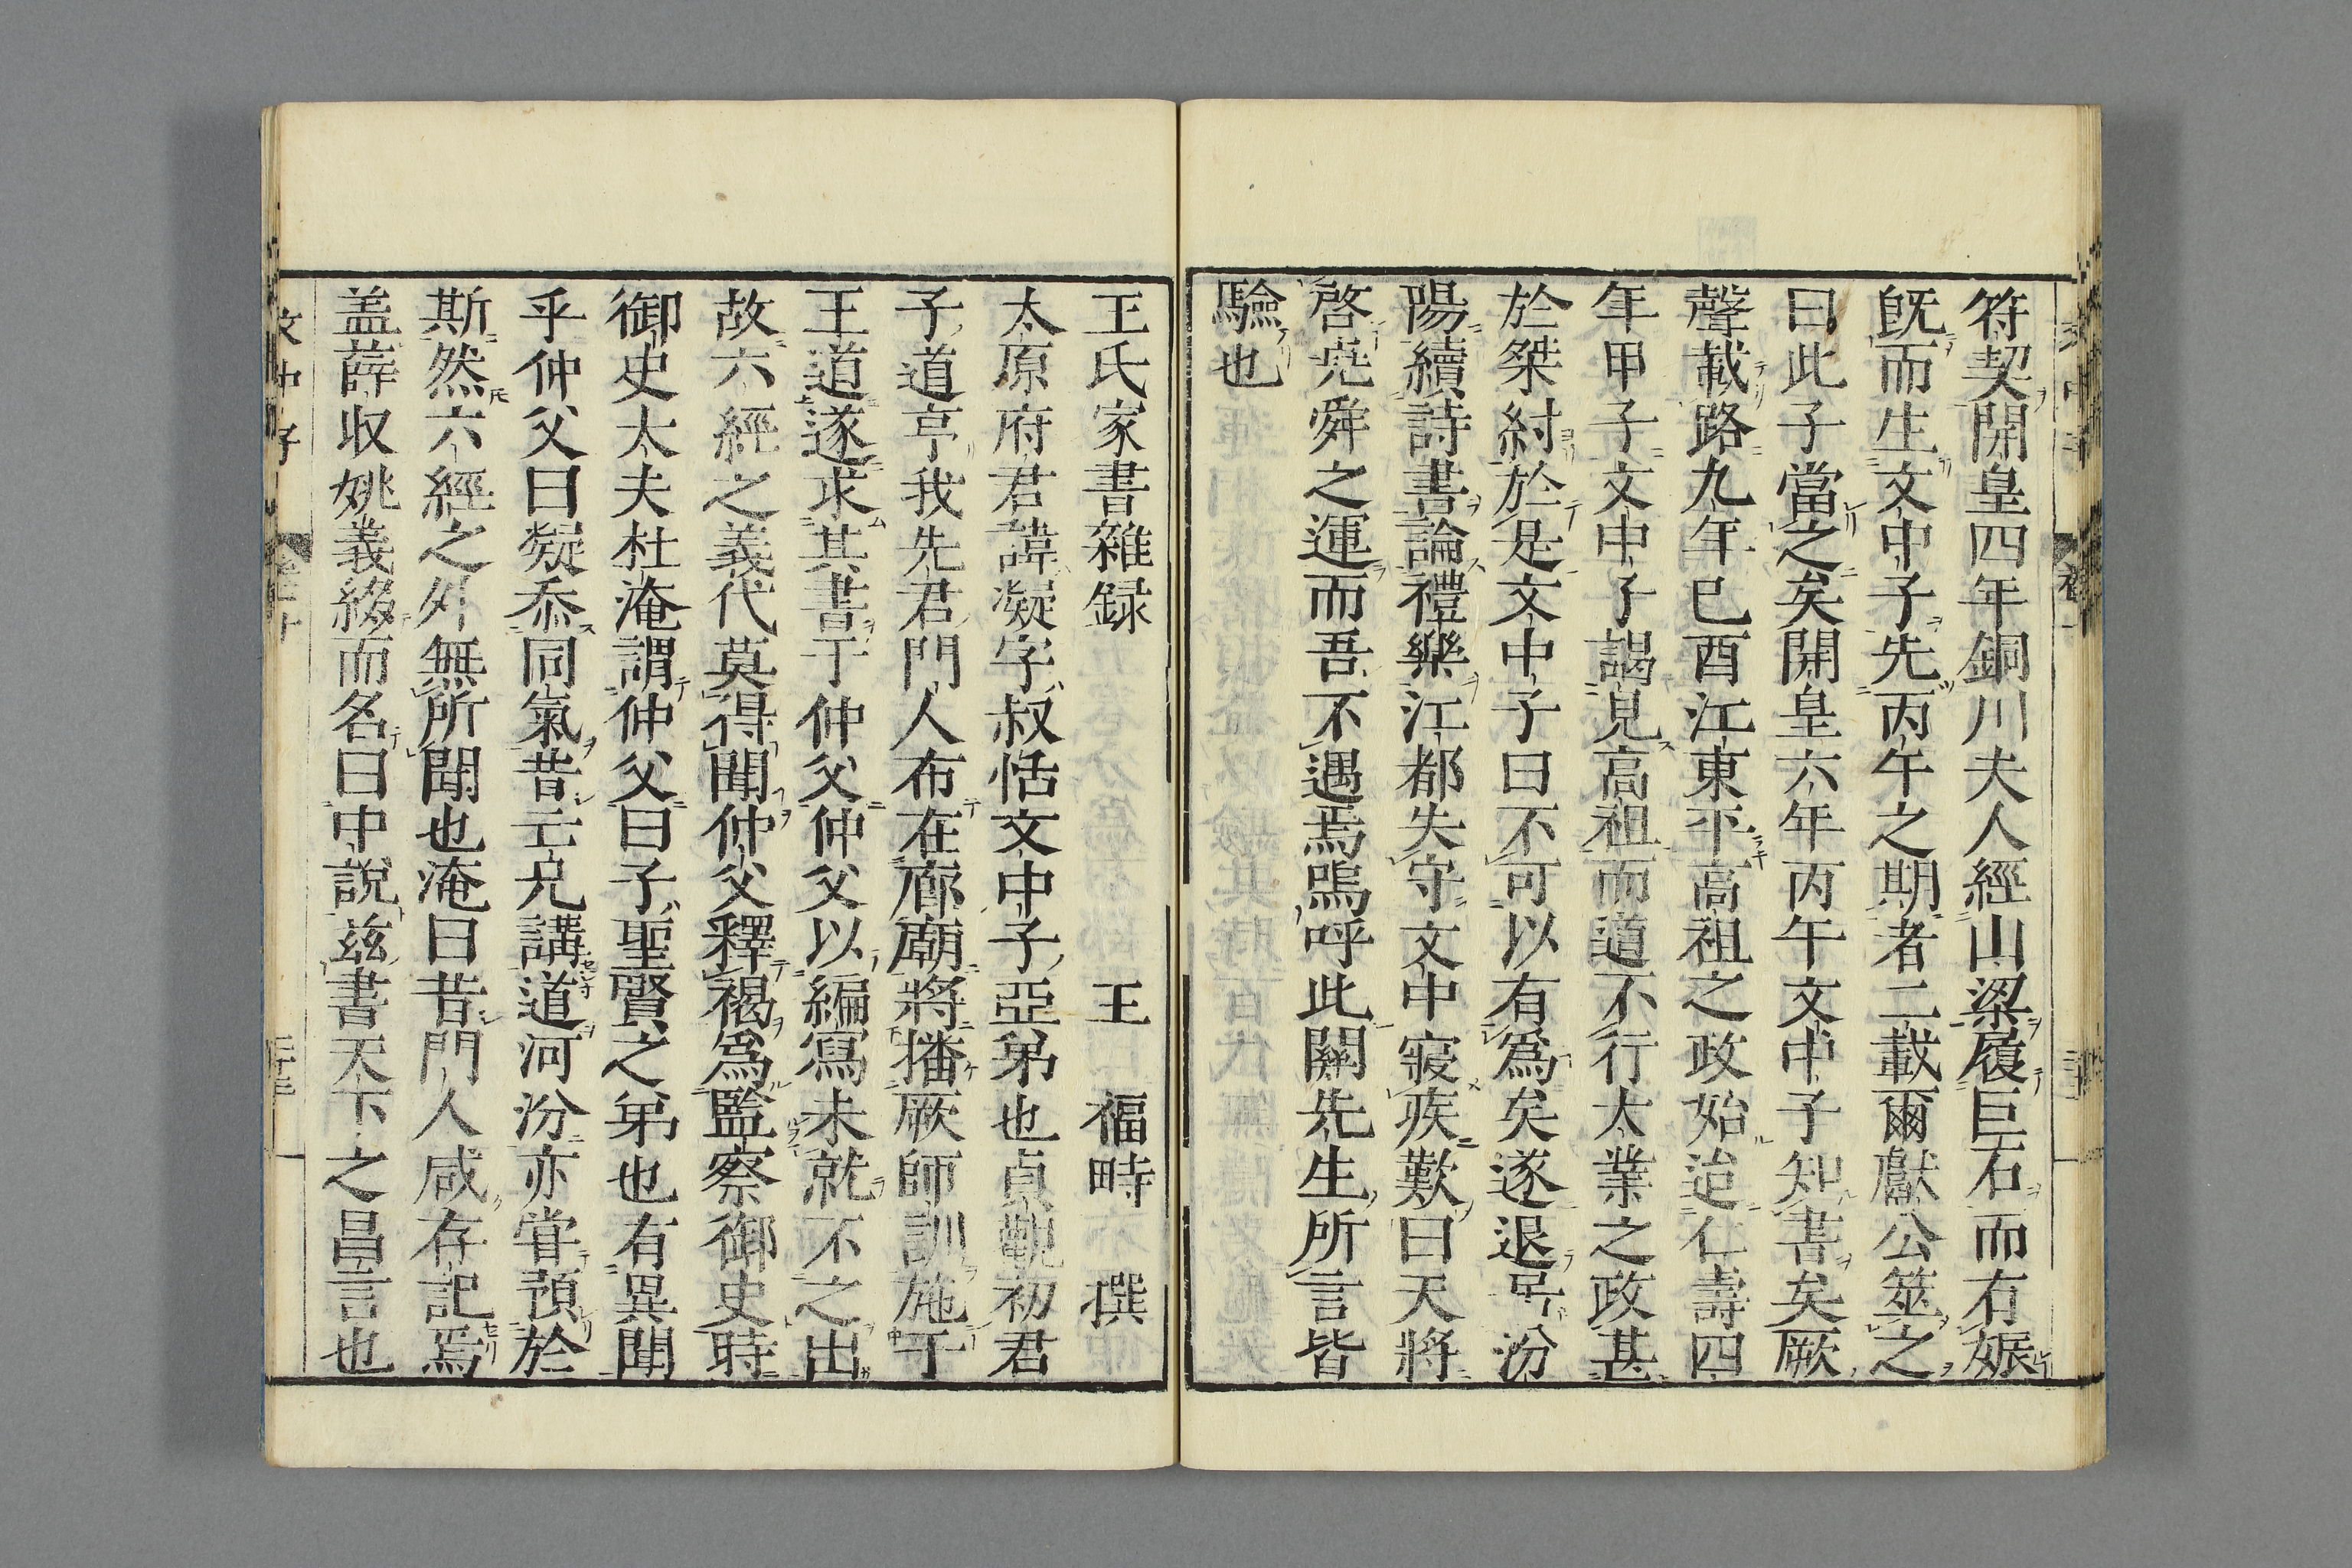 符契開皇四年銅川夫人經山梁履巨石而有娠
既而生文中子先丙午之期者二載爾獻公筮之
曰此子當之矣開皇六年丙午文中子知書矣厥
聲載路九年己酉江東平高祖之政始迨仁壽四
年甲子文中子謁見高祖而道不行大業之政甚
於桀紂於是文中子曰不可以有為矣遂退居汾
陽續詩書論禮樂江都失守文中寢疾歎曰天將
啓堯舜之運而吾不遇焉嗚呼此關先生所言皆
驗也
王氏家書雜録
王 福畤 撰
太原府君諱凝字叔恬文中子亞弟也貞觀初君
子道亨我先君門人布在廊廟將播厥師訓施于
王道遂求其書于仲父仲父以編寫未就不之出
故六經之義代莫得聞仲父釋褐為監察御史時
御史大夫杜淹謂仲父曰子聖賢之弟也有異聞
乎仲父曰凝忝同氣昔亡兄講道河汾亦嘗預於
斯然六經之外無所聞也淹曰昔門人咸存記焉
盖薛収姚義綴而名曰中說兹書天下之昌言也
文中子